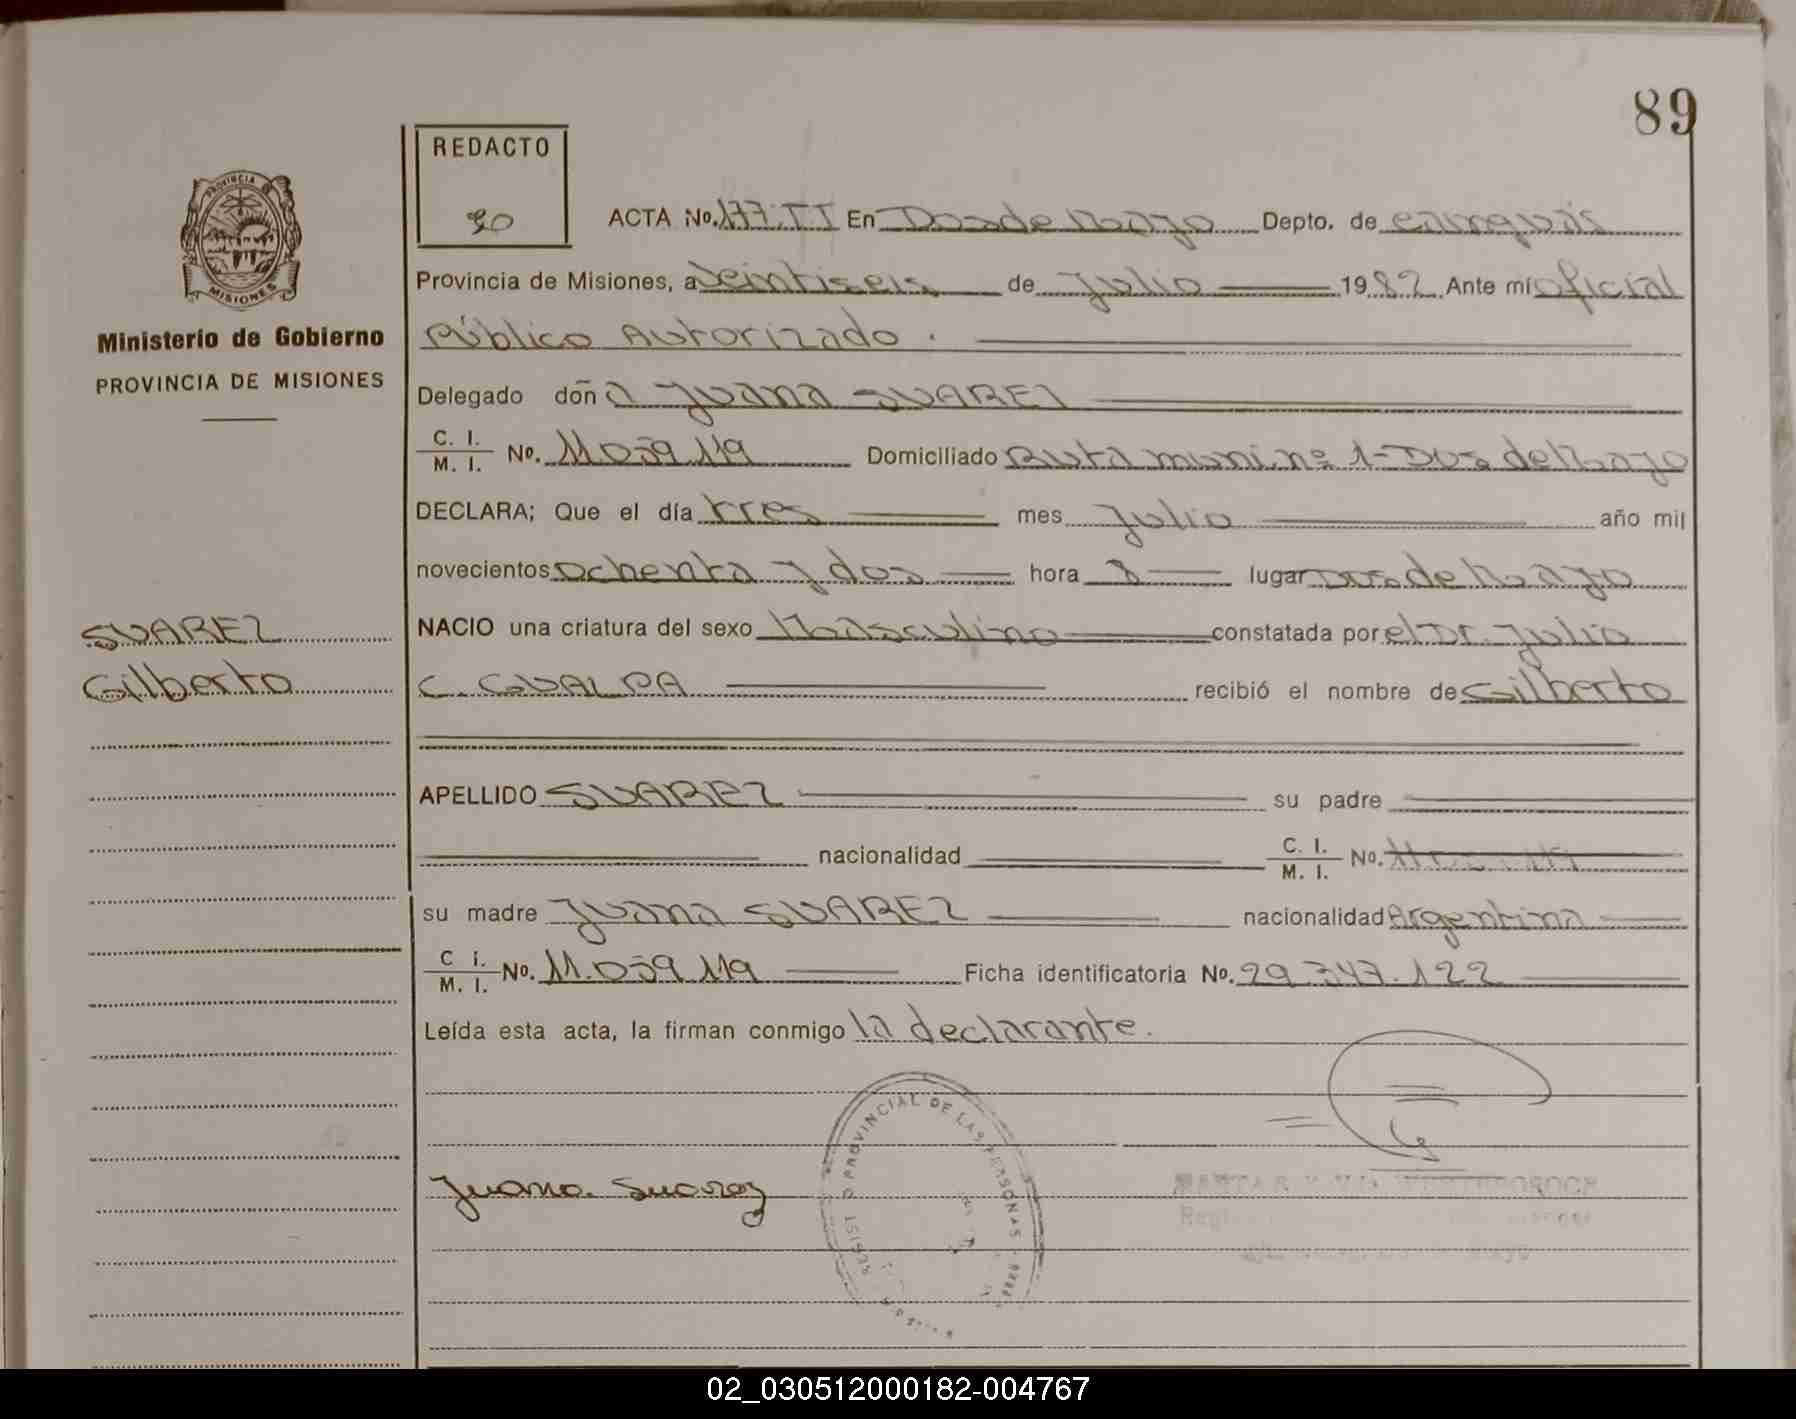 89
REDACTO
20
PROVINCIA
MISIONES
Ministerio de Gobierno
PROVINCIA DE MISIONES
SUAREZ
Gilberto
ACTA No. 177.II En Dos de Mayo Depto. de Cainguás
Provincia de Misiones, a Veintiseis de Julio 1982 Ante mí oficial
Público Autorizado.
Delegado doña Juana SUAREZ
C. I. M. I. No. 11.059.119 Domiciliado Ruta muni. nº 1-Dos de Mayo
DECLARA; Que el día tres mes Julio año mil
novecientos ochenta y dos hora 8 lugar Dos de Mayo
NACIO una criatura del sexo Masculino constatada por el Dr. Julio
C. GUALPA recibió el nombre de Gilberto
APELLIDO SUAREZ su padre
nacionalidad C. I. M. I. No.
su madre Juana SUAREZ nacionalidad Argentina
C. I. M. I. No. 11.059.119 Ficha identificatoria No. 29.347.122
Leída esta acta, la firman conmigo la declarante.
Juana Suarez
PROVINCIAL DE LAS PERSONAS
02_030512000182-004767